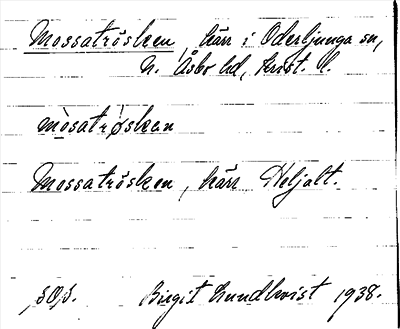 Mossatrösken, kärr i Oderljunga sn,
N. Åsbo hd, Krist. l.
mòsatrøskən
Mossatrösken, kärr Heljalt.
SOS. Birgit Lundkvist 1938.